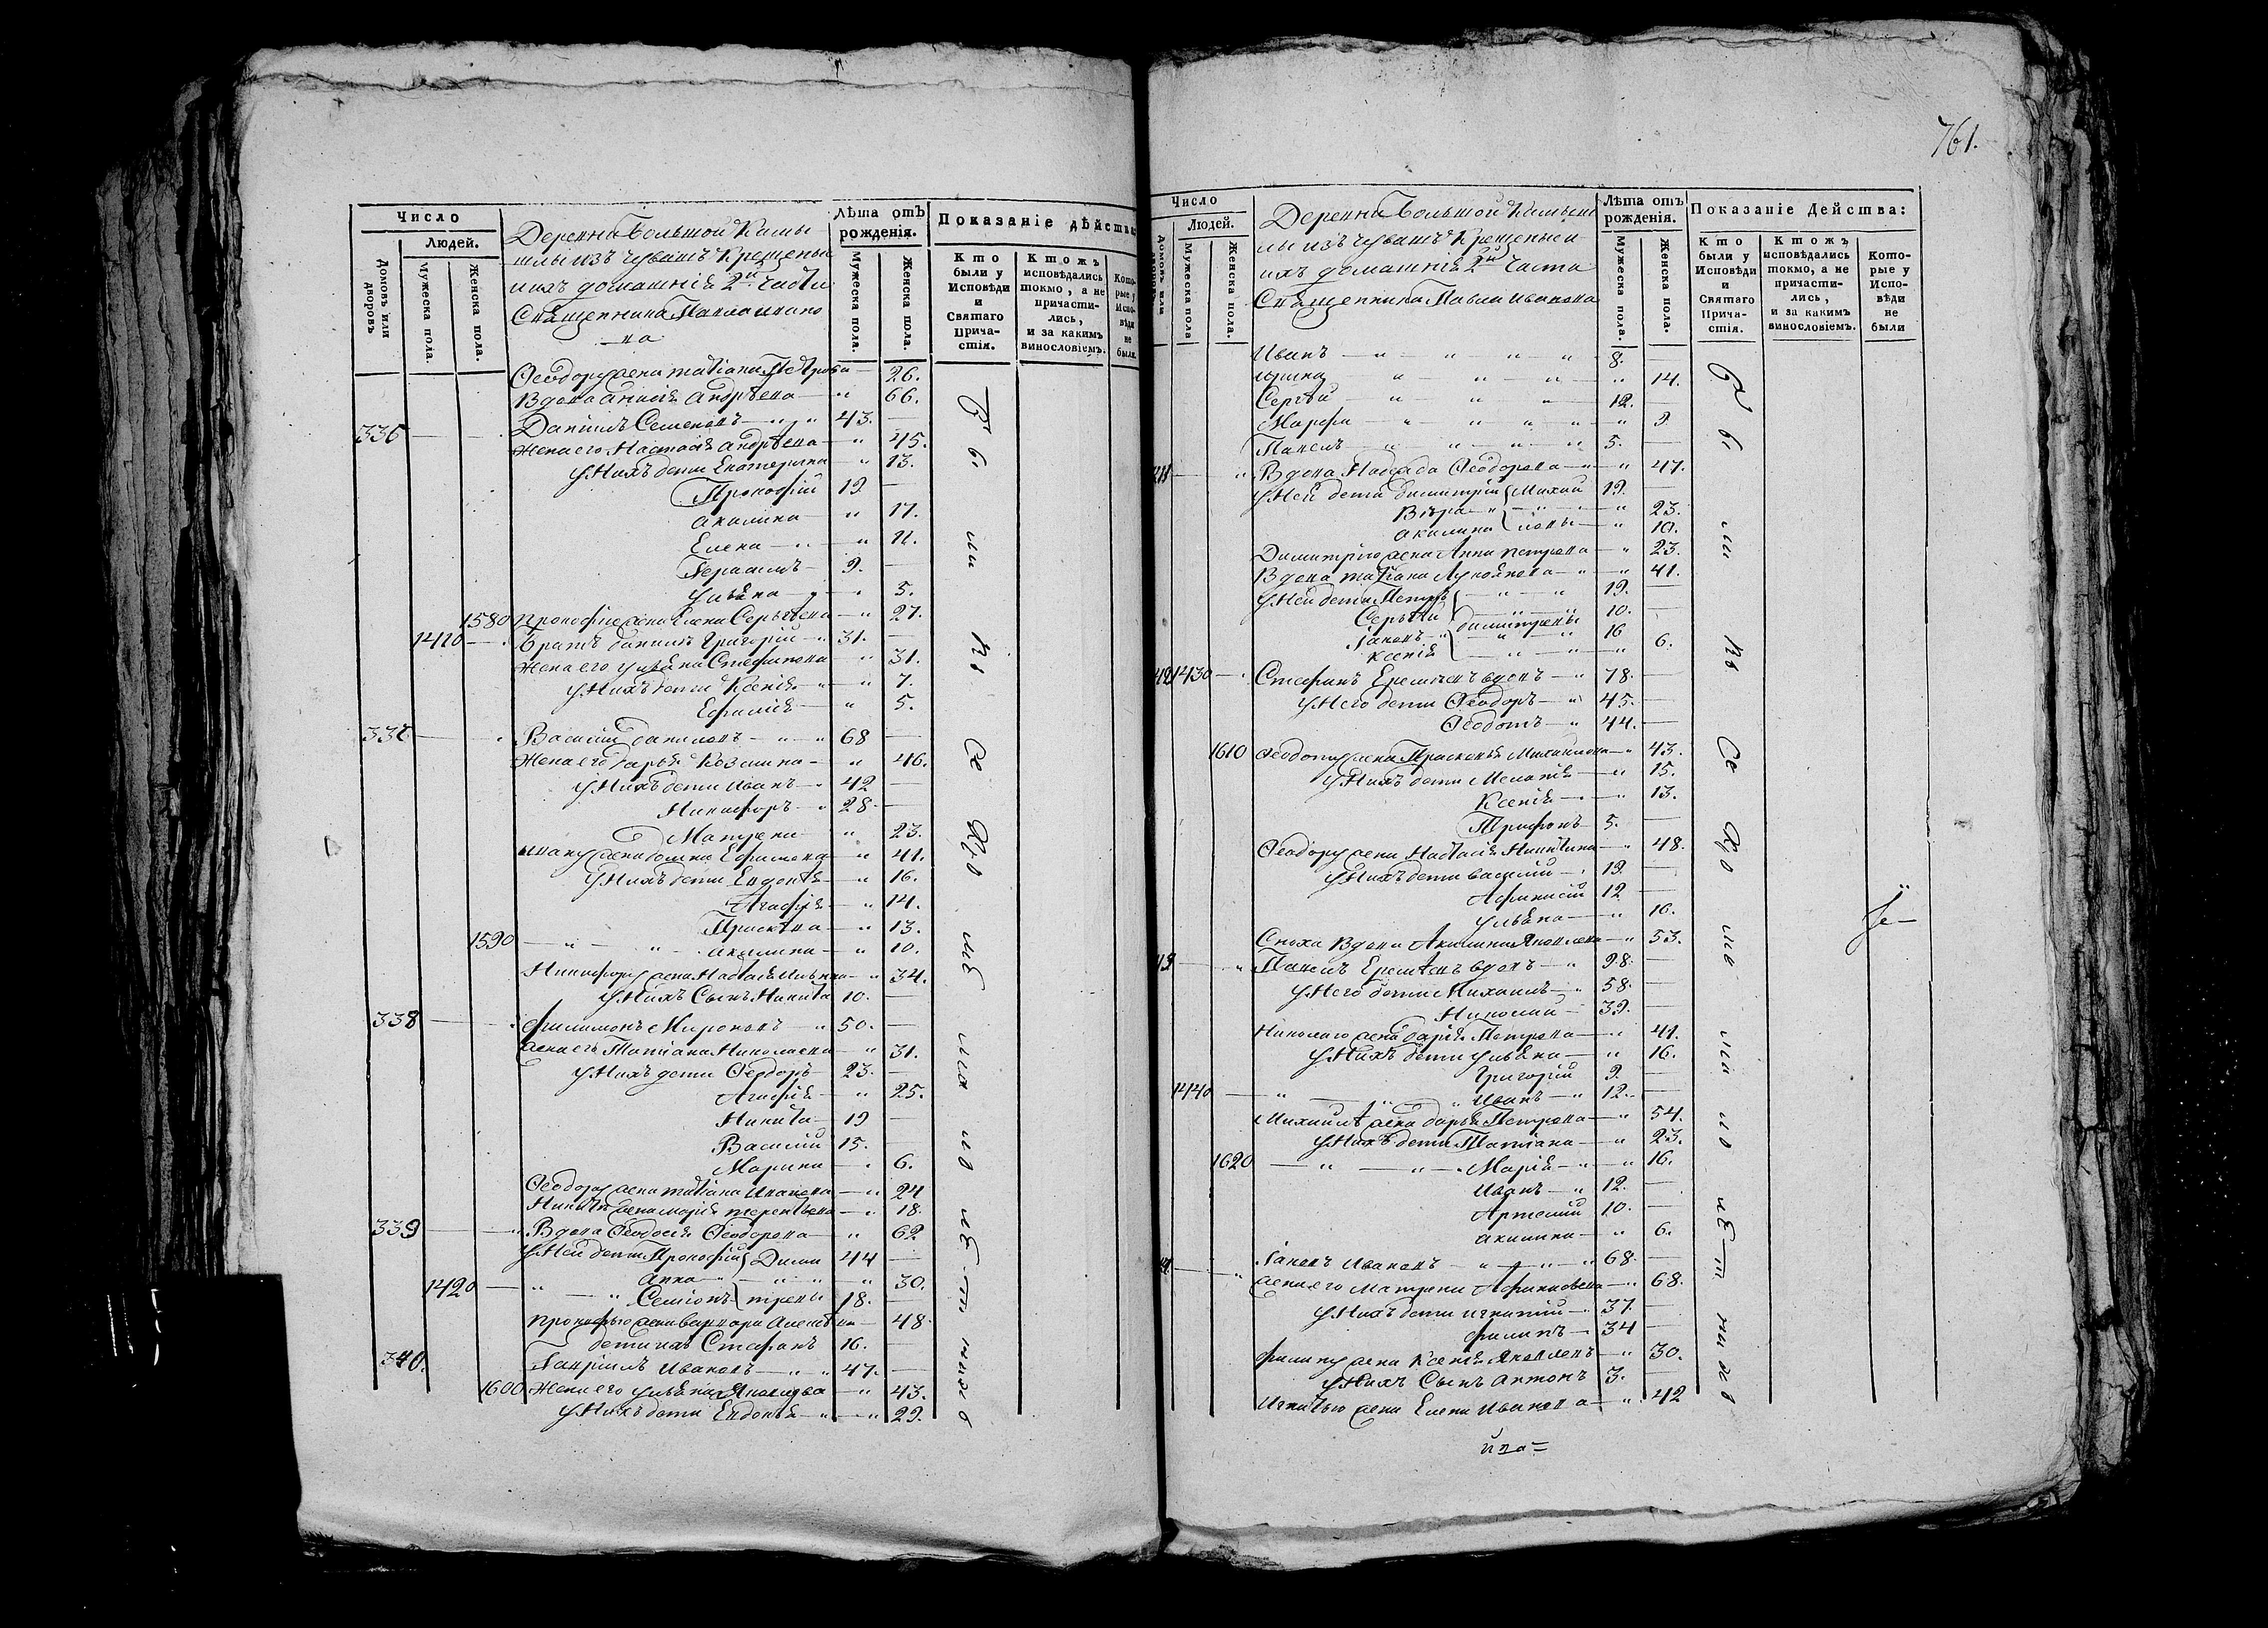 761.
Число
Людей.
Домовъ или дворовъ
Мужеска пола.
Женска пола.
Деревни Большой Камы
шлы изъ чувашъ Крещены
ихъ домашнія 2й части
Священника Павла Ивано
ва
Лѣта отъ рожденія.
Мужеска пола.
Женска пола.
Показаніе дѣйства
Кто были у Исповѣди и Святаго Причастія.
Ктожъ исповѣдались токмо, а не причастились, и за какимъ винословіемъ.
Которые у Исповѣди не были.
Ѳеодору жена татіана Петрова 26.
Вдова Анисія Андрѣева 66.
336 Даніилъ Семеновъ 43.
Жена его Настасія Андрѣева 45.
У Нихъ дети Екатерина 13.
Прокофій 19.
акилина 17.
Елена 11.
Герасимъ 9.
Ульяна 5.
1580 Прокофію жена Елена Сергѣева 27.
1410 Братъ даниилъ Григорій 31.
Жена его ульяна Стефанова 31.
У Нихъ дети Ксенія 7.
Ефимія 5.
337 Василий даниловъ 68
Жена его дарья Козмина 46.
У Нихъ дети Иванъ 42
Никифоръ 28.
Матрена 23.
Ивану жена домна Ефимова 41.
У Нихъ дети Евдокія 16.
Агафія 14.
Прасковья 13.
1590 акилина 10.
Никифору жена Настасія 34.
У Нихъ Сынъ Никита 10.
338 Филимонъ Мироновъ 50.
жена его Татиана Николаева 31.
У Нихъ дети Ѳеодоръ 23.
Агафія 25.
Никита 19
Василий 15.
Марина 6.
Ѳеодору жена татіана Иванова 24
Никитѣ жена марія терентьева 18.
339 Вдова Ѳеодосія Ѳеодорова 62
У Ней дети Прокофій Дими 44
Анна 30.
1420 Семіонъ тревы 18.
Прокофью жена варвара 48.
дети ихъ Стефанъ 16.
340. Гавріилъ Ивановъ 47.
1600 Жена его ульяна Яковлева 43.
У Нихъ дети Евдокія 29.
Число
Людей.
Домовъ или
Мужеска пола
Женска пола.
Деревни Большой Камыш
лы изъ чувашъ Крещены и
ихъ домашнія 2й части
Священника Павла Иванова
Лѣта отъ рожденія.
Мужеска пола.
Женска пола.
Показаніе Действа:
Кто были у Исповѣди и Святаго Причастія.
Ктожъ исповѣдались токмо, а не причастились, и за какимъ винословіемъ.
Которые у Исповѣди не были
Иванъ 8.
Ирина 14.
Сергѣй 12.
Марфа 9.
Павелъ 5.
41 Вдова Надежда Ѳеодорова 47.
У Ней дети димитрій Михаи 19.
Вѣра 23.
акилина ловы 10.
Димитрію жена Анна петрова 23.
Вдова татіана Лукоянова 41.
У Ней дети Петръ 19.
Сергѣй димитревы 10.
Іаковъ 16
Ксенія 6.
42 1430 Стефанъ Еремѣевъ вдовъ 78.
У Него дети Ѳеодоръ 45.
Ѳеодотъ 44.
1610 Ѳеодоту жена Прасковья Михайлова 43.
У Нихъ дети Меланія 15.
Ксенія 13.
Трифонъ 5.
Ѳеодору жена Настасія Никитина 48.
У Нихъ дети василий 19.
Афанасій 12
Ульяна 16.
Сноха Вдова Акилина Яковлева 53.
43 Павелъ Еремѣевъ вдовъ 98.
У Него дети Михаилъ 58.
Николай 39.
Николаю жена дарія Петрова 41.
У Нихъ дети ульяна 16.
Григорій 9.
1440 Иванъ 12.
Михаилѣ жена дарья Петрова 54.
У Нихъ дети Татиана 23.
1620 Марія 16.
Иванъ 12.
Артемий 10.
акилина 6.
Іаковъ Ивановъ 68.
жена его Матрена Афанасьева 68.
У Нихъ дети игнатий 37.
филипъ 34
Филипу жена Ксенія Яковлевъ 30.
У Нихъ Сынъ Антонъ 3.
Игнатью жена Елена Иванова 42